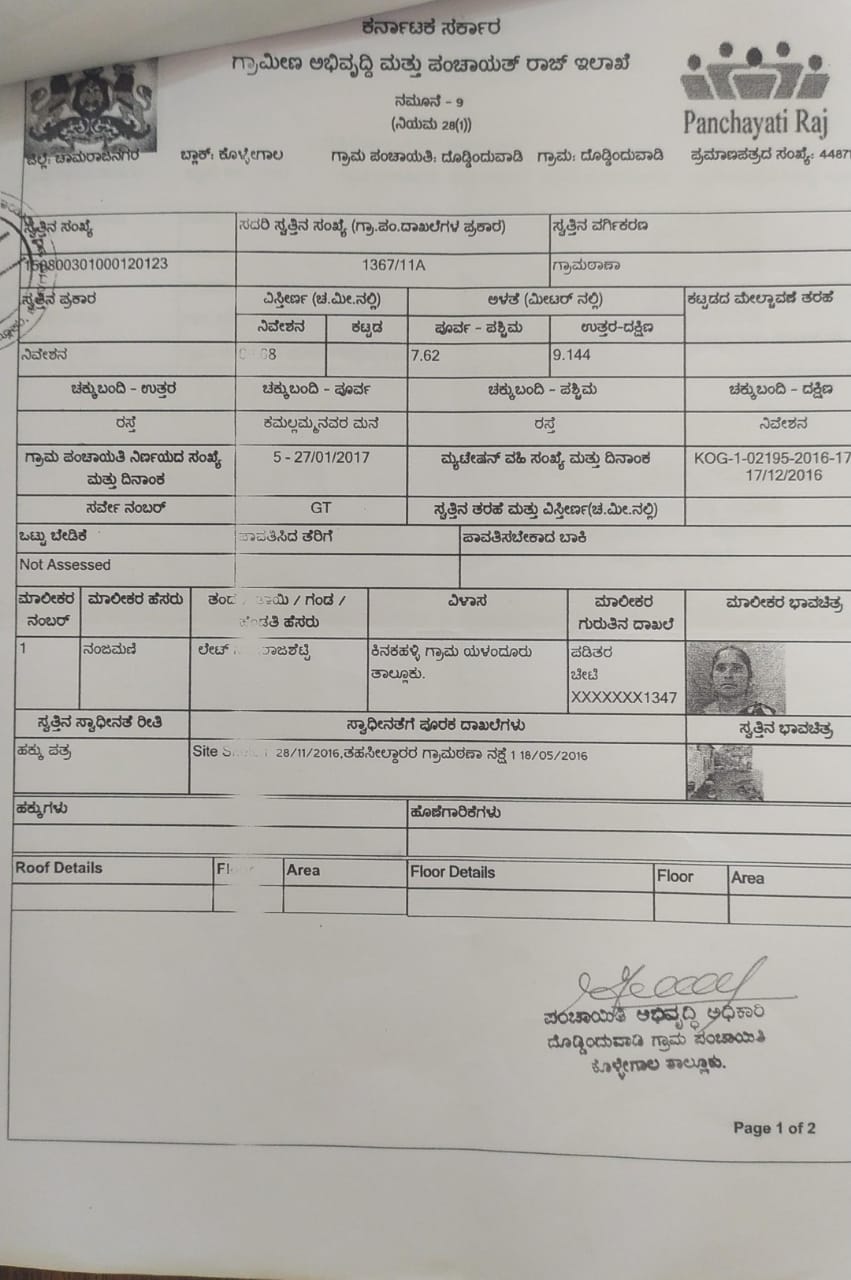 ಕರ್ನಾಟಕ ಸರ್ಕಾರ
ಗ್ರಾಮೀಣ ಅಭಿವೃದ್ಧಿ ಮತ್ತು ಪಂಚಾಯತ್ ರಾಜ್ ಇಲಾಖೆ
ನಮೂನೆ - 9
(ನಿಯಮ 28(1))
Panchayati Raj
ಜಿಲ್ಲೆ: ಚಾಮರಾಜನಗರ ಬ್ಲಾಕ್: ಕೊಳ್ಳೇಗಾಲ ಗ್ರಾಮ ಪಂಚಾಯತಿ: ದೊಡ್ಡಿಂದುವಾಡಿ ಗ್ರಾಮ: ದೊಡ್ಡಿಂದುವಾಡಿ ಪ್ರಮಾಣಪತ್ರದ ಸಂಖ್ಯೆ: 4487
ಸ್ವತ್ತಿನ ಸಂಖ್ಯೆ ಸದರಿ ಸ್ವತ್ತಿನ ಸಂಖ್ಯೆ (ಗ್ರಾ.ಪಂ.ದಾಖಲೆಗಳ ಪ್ರಕಾರ) ಸ್ವತ್ತಿನ ವರ್ಗಿಕರಣ
150800301000120123 1367/11A ಗ್ರಾಮಠಾಣಾ
ಸ್ವತ್ತಿನ ಪ್ರಕಾರ ವಿಸ್ತೀರ್ಣ (ಚ.ಮೀ.ನಲ್ಲಿ) ಅಳತೆ (ಮೀಟರ್ ನಲ್ಲಿ) ಕಟ್ಟಡದ ಮೇಲ್ಚಾವಣೆ ತರಹೆ
ನಿವೇಶನ ಕಟ್ಟಡ ಪೂರ್ವ - ಪಶ್ಚಿಮ ಉತ್ತರ-ದಕ್ಷಿಣ
ನಿವೇಶನ 7.62 9.144
ಚಕ್ಕುಬಂದಿ - ಉತ್ತರ ಚಕ್ಕುಬಂದಿ - ಪೂರ್ವ ಚಕ್ಕುಬಂದಿ - ಪಶ್ಚಿಮ ಚಕ್ಕುಬಂದಿ - ದಕ್ಷಿಣ
ರಸ್ತೆ ಕಮಲ್ಲಮ್ಮನವರ ಮನೆ ರಸ್ತೆ ನಿವೇಶನ
ಗ್ರಾಮ ಪಂಚಾಯತಿ ನಿರ್ಣಯದ ಸಂಖ್ಯೆ 5 - 27/01/2017 ಮ್ಯುಟೇಷನ್ ವಹಿ ಸಂಖ್ಯೆ ಮತ್ತು ದಿನಾಂಕ KOG-1-02195-2016-17
ಮತ್ತು ದಿನಾಂಕ 17/12/2016
ಸರ್ವೇ ನಂಬರ್ GT ಸ್ವತ್ತಿನ ತರಹೆ ಮತ್ತು ವಿಸ್ತೀರ್ಣ(ಚ.ಮೀ.ನಲ್ಲಿ)
ಒಟ್ಟು ಬೇಡಿಕೆ ಪಾವತಿಸಿದ ತೆರಿಗೆ ಪಾವತಿಸಬೇಕಾದ ಬಾಕಿ
Not Assessed
ಮಾಲೀಕರ ಮಾಲೀಕರ ಹೆಸರು ತಂದೆ / ತಾಯಿ / ಗಂಡ / ವಿಳಾಸ ಮಾಲೀಕರ ಮಾಲೀಕರ ಭಾವಚಿತ್ರ
ನಂಬರ್ ಹೆಂಡತಿ ಹೆಸರು ಗುರುತಿನ ದಾಖಲೆ
1 ನಂಜಮಣಿ ಲೇಟ್ ರಾಜಶೆಟ್ಟಿ ಕಿನಕಹಳ್ಳಿ ಗ್ರಾಮ ಯಳಂದೂರು ಪಡಿತರ
ತಾಲ್ಲೂಕು. ಚೀಟಿ
XXXXXXX1347
ಸ್ವತ್ತಿನ ಸ್ವಾಧೀನತೆ ರೀತಿ ಸ್ವಾಧೀನತೆಗೆ ಪೂರಕ ದಾಖಲೆಗಳು ಸ್ವತ್ತಿನ ಭಾವಚಿತ್ರ
ಹಕ್ಕು ಪತ್ರ Site 28/11/2016,ತಹಸೀಲ್ದಾರರ ಗ್ರಾಮಠಣಾ ನಕ್ಷೆ 1 18/05/2016
ಹಕ್ಕುಗಳು ಹೊಣೆಗಾರಿಕೆಗಳು
Roof Details Floor Area Floor Details Floor Area
ಪಂಚಾಯಿತಿ ಅಭಿವೃದ್ಧಿ ಅಧಿಕಾರಿ
ದೊಡ್ಡಿಂದುವಾಡಿ ಗ್ರಾಮ ಪಂಚಾಯಿತಿ
ಕೊಳ್ಳೇಗಾಲ ತಾಲ್ಲೂಕು.
Page 1 of 2